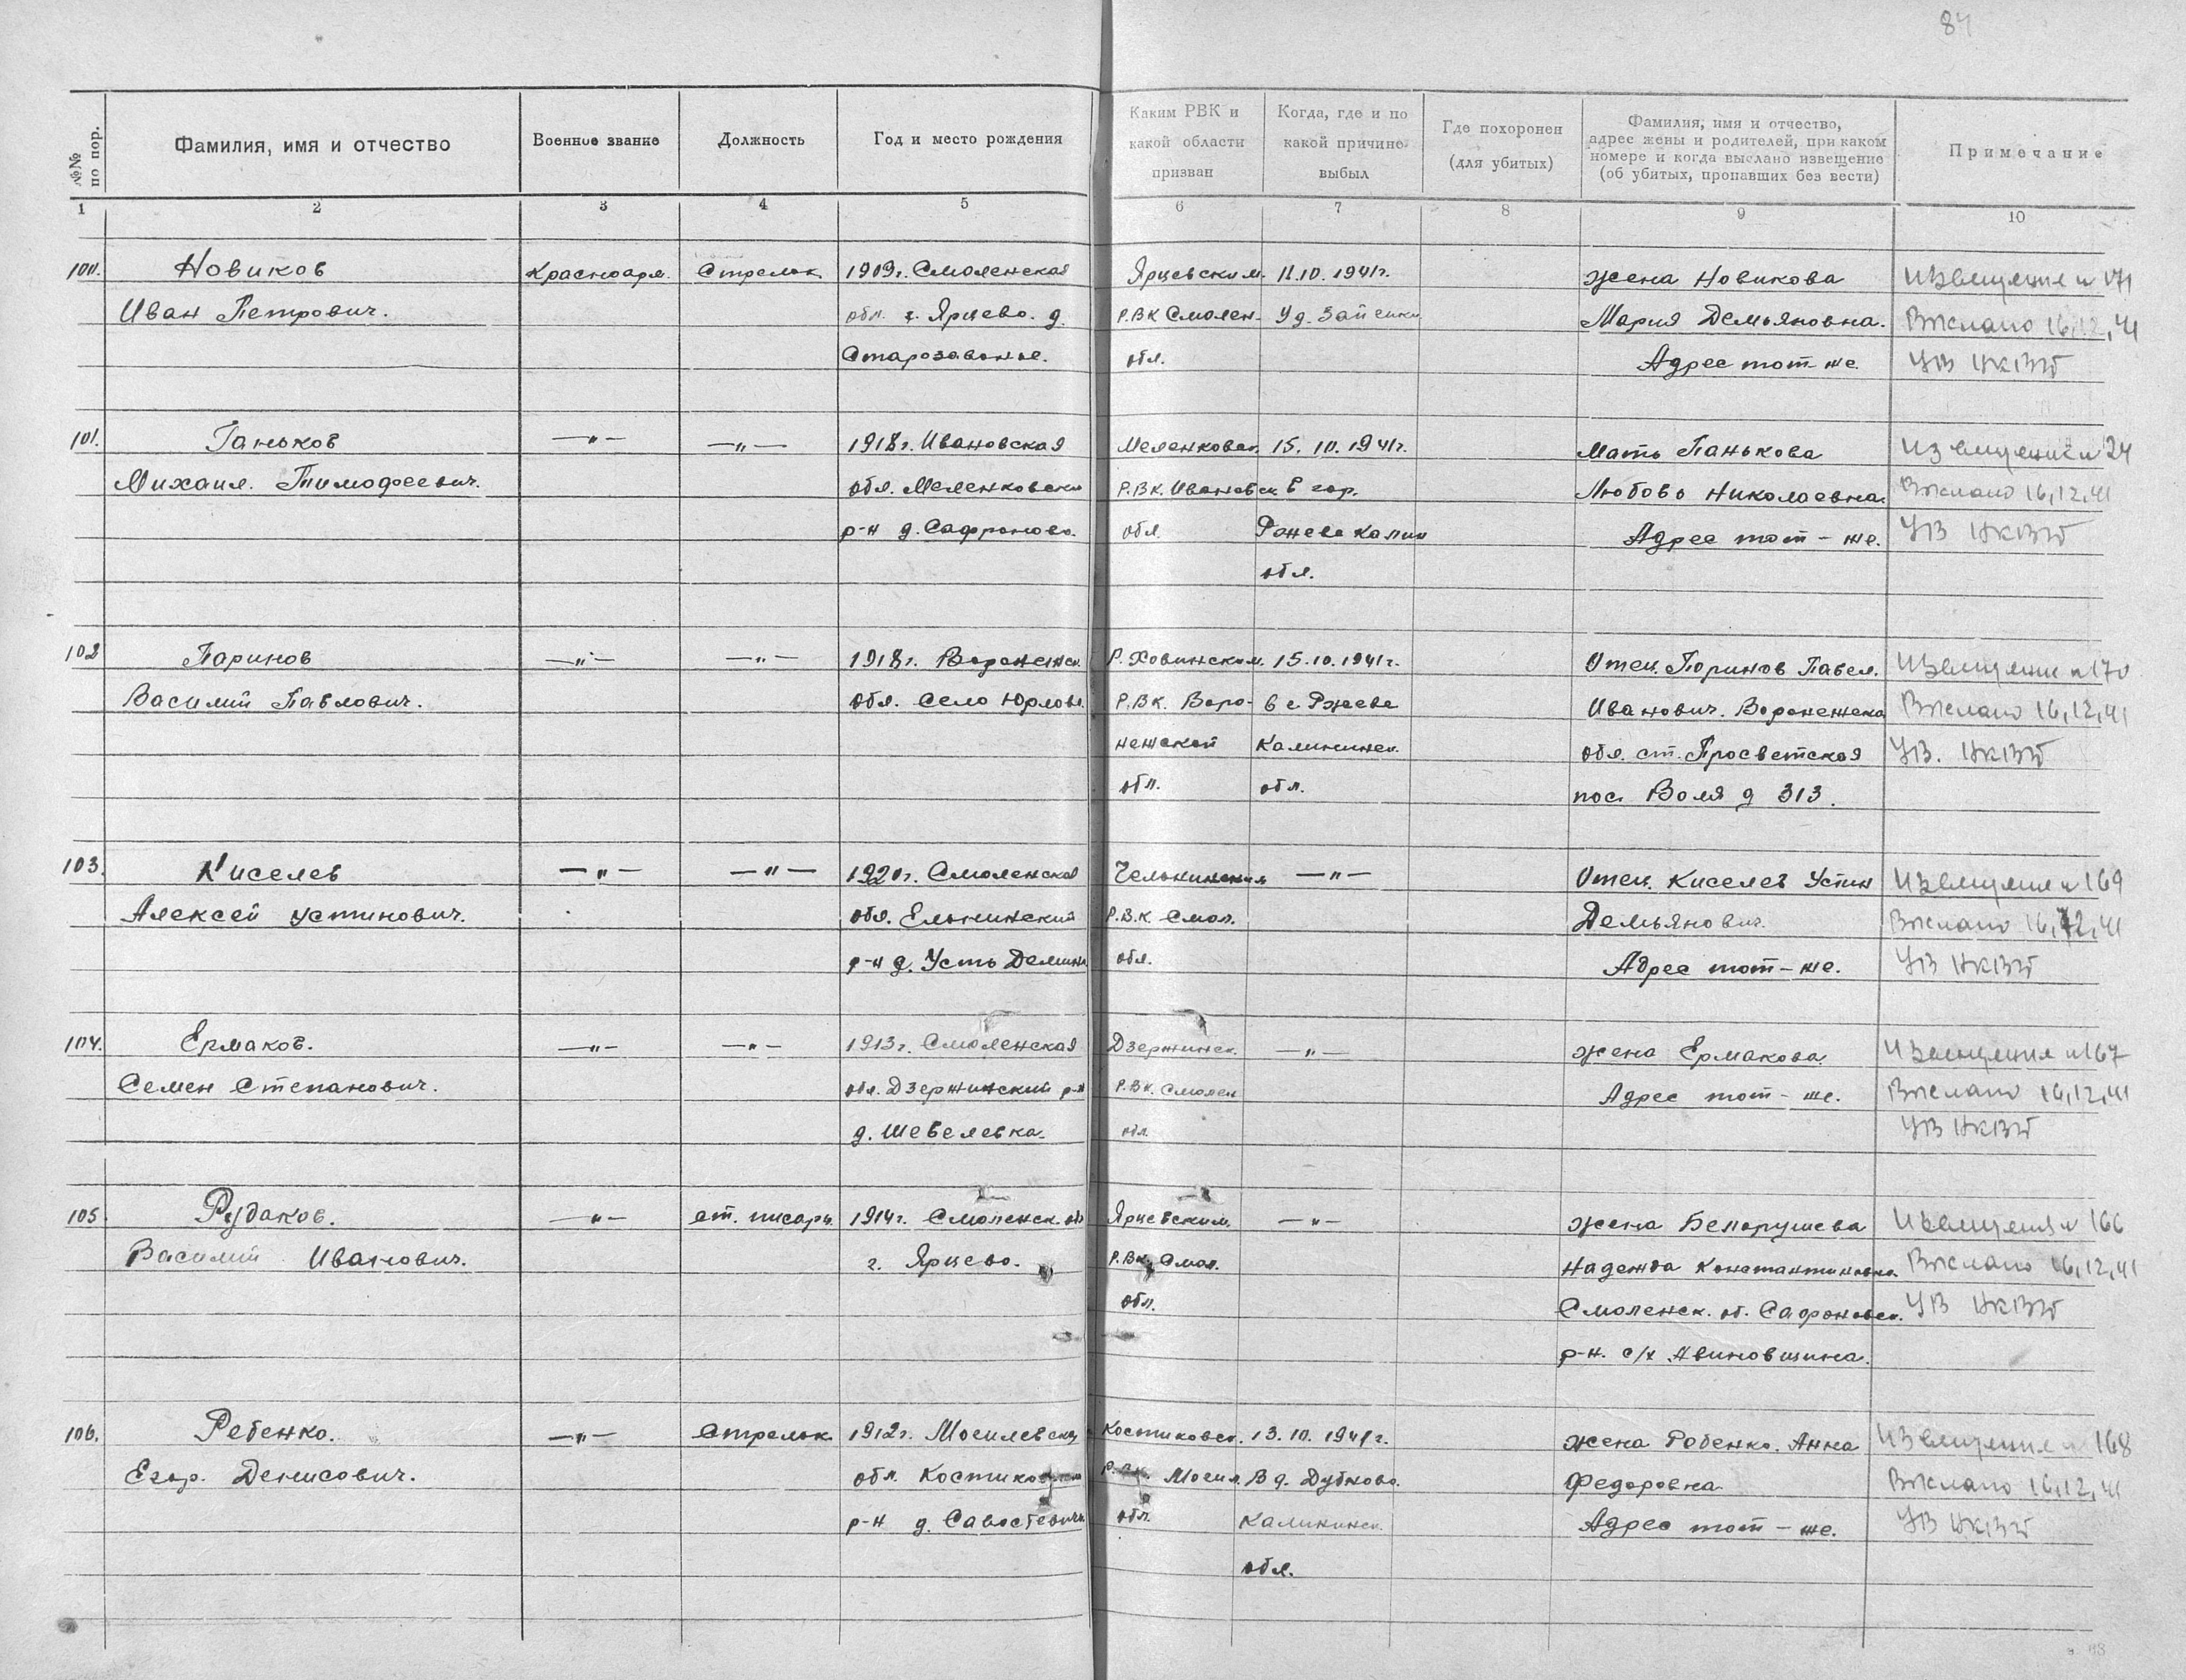 84
№№ по пор.
Фамилия, имя и отчество
Военное звание
Должность
Год и место рождения
Каким РВК и какой области призван
Когда, где и по какой причине выбыл
Где похоронен (для убитых)
Фамилия, имя и отчество, адрес жены и родителей, при каком номере и когда выслано извещение (об убитых, пропавших без вести)
Примечание
1 2 3 4 5 6 7 8 9 10
100. Новиков Красноарм. Стрелок 1909г. Смоленская Ярцевским. 11.10.1941г. жена Новикова Извещение н 171
Иван Петрович. обл. г. Ярцево. д. Р.ВК Смолен- У д. Зайчики Мария Демьяновна. Выслано 16,12,41
Старозавонье. обл. Адрес тот-же. УВ НКВД
101. Ганьков —„— —„— 1918г. Ивановская Меленковск. 15.10.1941г. Мать Панькова Извещение н 24
Михаил. Тимофеевич. обл. Меленковски Р.ВК. Ивановск В гор. Любовь Николаевна. Выслано 16,12,41
р-н д. Сафроново. обл. Ржева Калин Адрес тот-же. УВ НКВД
обл.
102 Паринов —„— —„— 1918г. Воронежск. Р. Ховинским. 15.10.1941г. Отец. Поринов Павел. Извещение н 170
Василий Павлович. обл. Село Юрлово. Р.ВК. Воро- в г. Ржеве Иванович. Воронежска Выслано 16,12,41
нежской Калининск. обл. ст. Просветская УВ. НКВД
обл. обл. пос. Воля д 313.
103. Киселев —„— —„— 1920г. Смоленская Ельнинским —„— Отец. Киселев Устин Извещение н 169
Алексей Устинович. обл. Ельнинский Р.В.К Смол. Демьянович. Выслано 16,12,41
р-н д. Усть Демина обл. Адрес тот-же. УВ НКВД
104. Ермаков. —„— —„— 1913г. Смоленская Дзержинск. —„— жена Ермакова Извещение н 167
Семен Степанович. обл. Дзержинский р-н Р.ВК. Смолен Адрес тот-же. Выслано 16,12,41
д. Шевелевка. обл. УВ НКВД
105 Рудаков. —„— ст. писарь. 1914г. Смоленск. об Ярцевским. —„— жена Белорушева Извещения н 166
Василий Иванович. г. Ярцево. Р.ВК. Смол. Надежда Константиновна. Выслано 16,12,41
обл. Смоленск. об. Сафоновск. УВ НКВД
р-н. с/х Авиновщина.
106. Ребенко. —„— Стрелок 1912г. Могилевску Костиковск. 13.10.1941г. жена Робенко. Анна Извещение н 168
Егор. Денисович. обл. Костиковск Р.ВК. Могил. В д. Дубково. Федоровна. Выслано 16,12,41
р-н д. Савостевичи обл. Калининск. Адрес тот-же. УВ НКВД
обл.